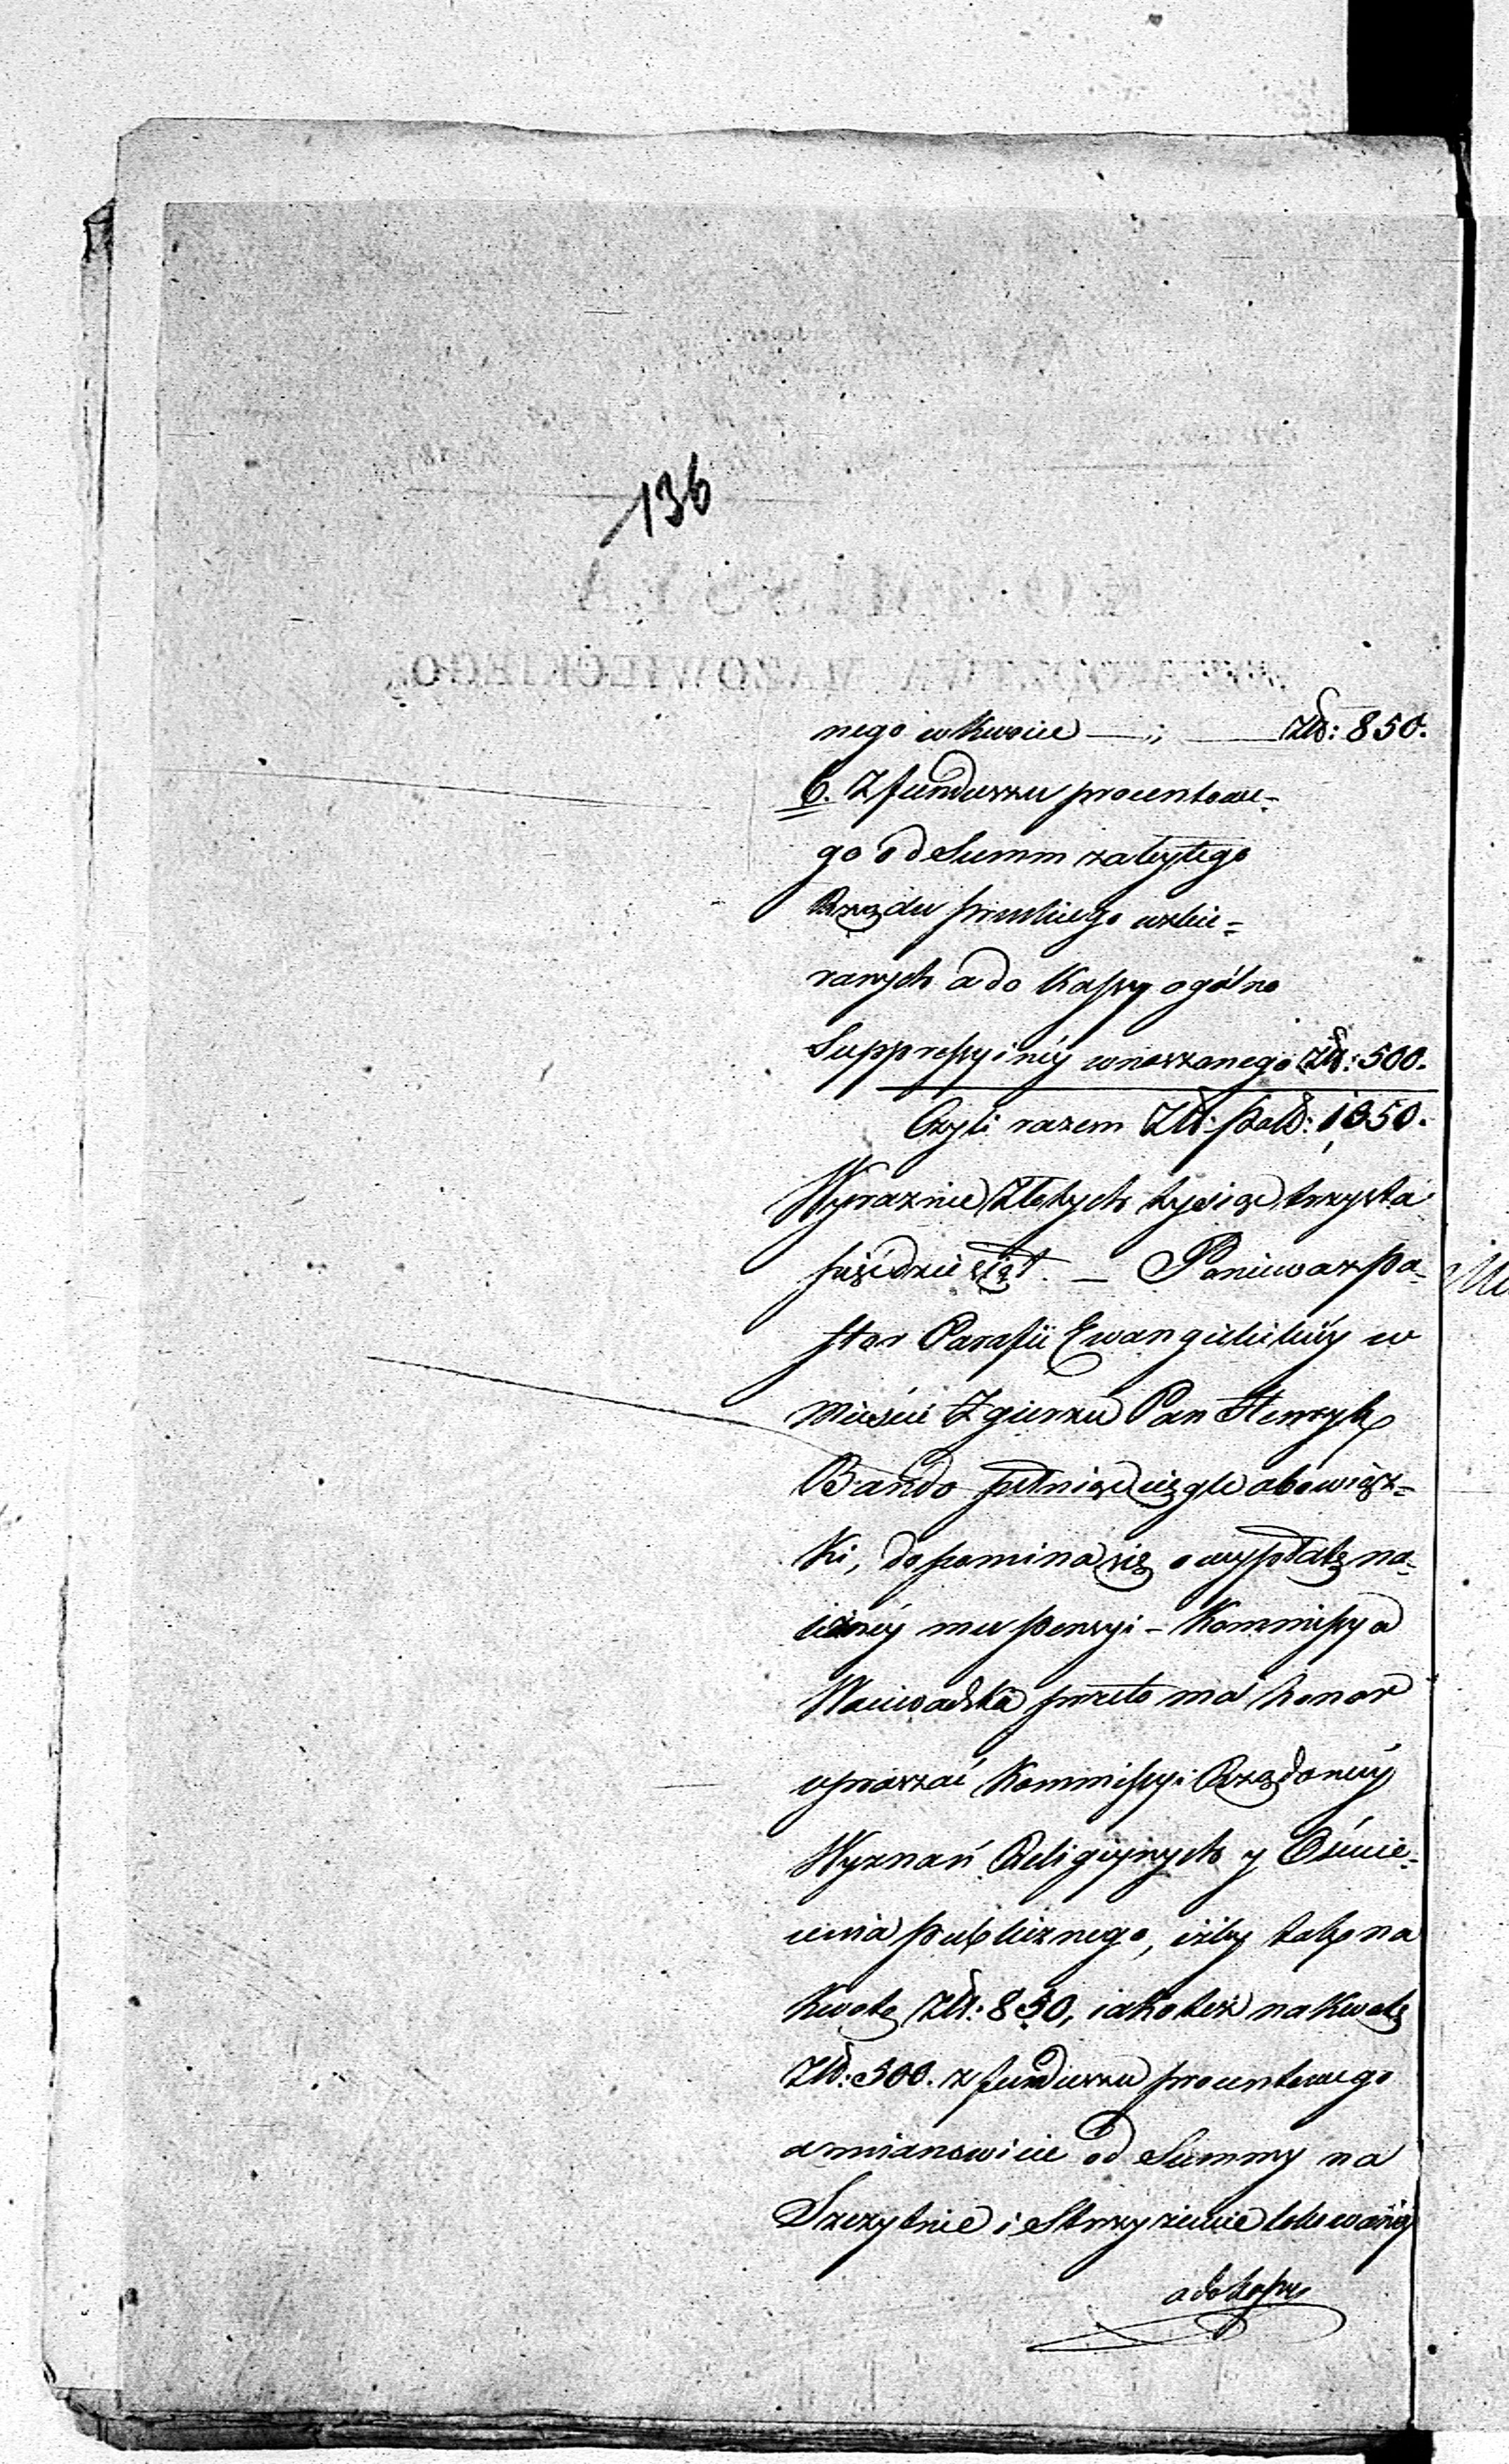 136
nego w kwocie — „ — Złt: 850.
6. Z funduszu procentowe-
go od Summ zabytego
Rządu pruskiego uzbie-
ranych a do Kassy ogólno
Suppressyinéy wnoszonego Złt: 500.
Czyli razem Złt: pols: 1350.
Wyraznie Złotych tysiąc trzysta
pięćdziesiąt. — Poniewasz pa-
stor Parafii Ewangielickiéy w
mieście Zgierzu Pan Henryk
Bando pełniąc ciągle obowiąz-
ki, dopomina się o wypłatę na-
leżnéy mu pensyi – Kommissya
Woiewodzka przeto ma honor
upraszać Kommissyi Rządowéy
Wyznań Religiynych y Oświe-
cenia publicznego, iżby tak na
kwotę Złt: 850, iako też na kwotę
Złt: 500. z funduszu procentowego
a mianowicie od Summy na
Szczytnie i Strzyżewie lokowanéy
a do kassy